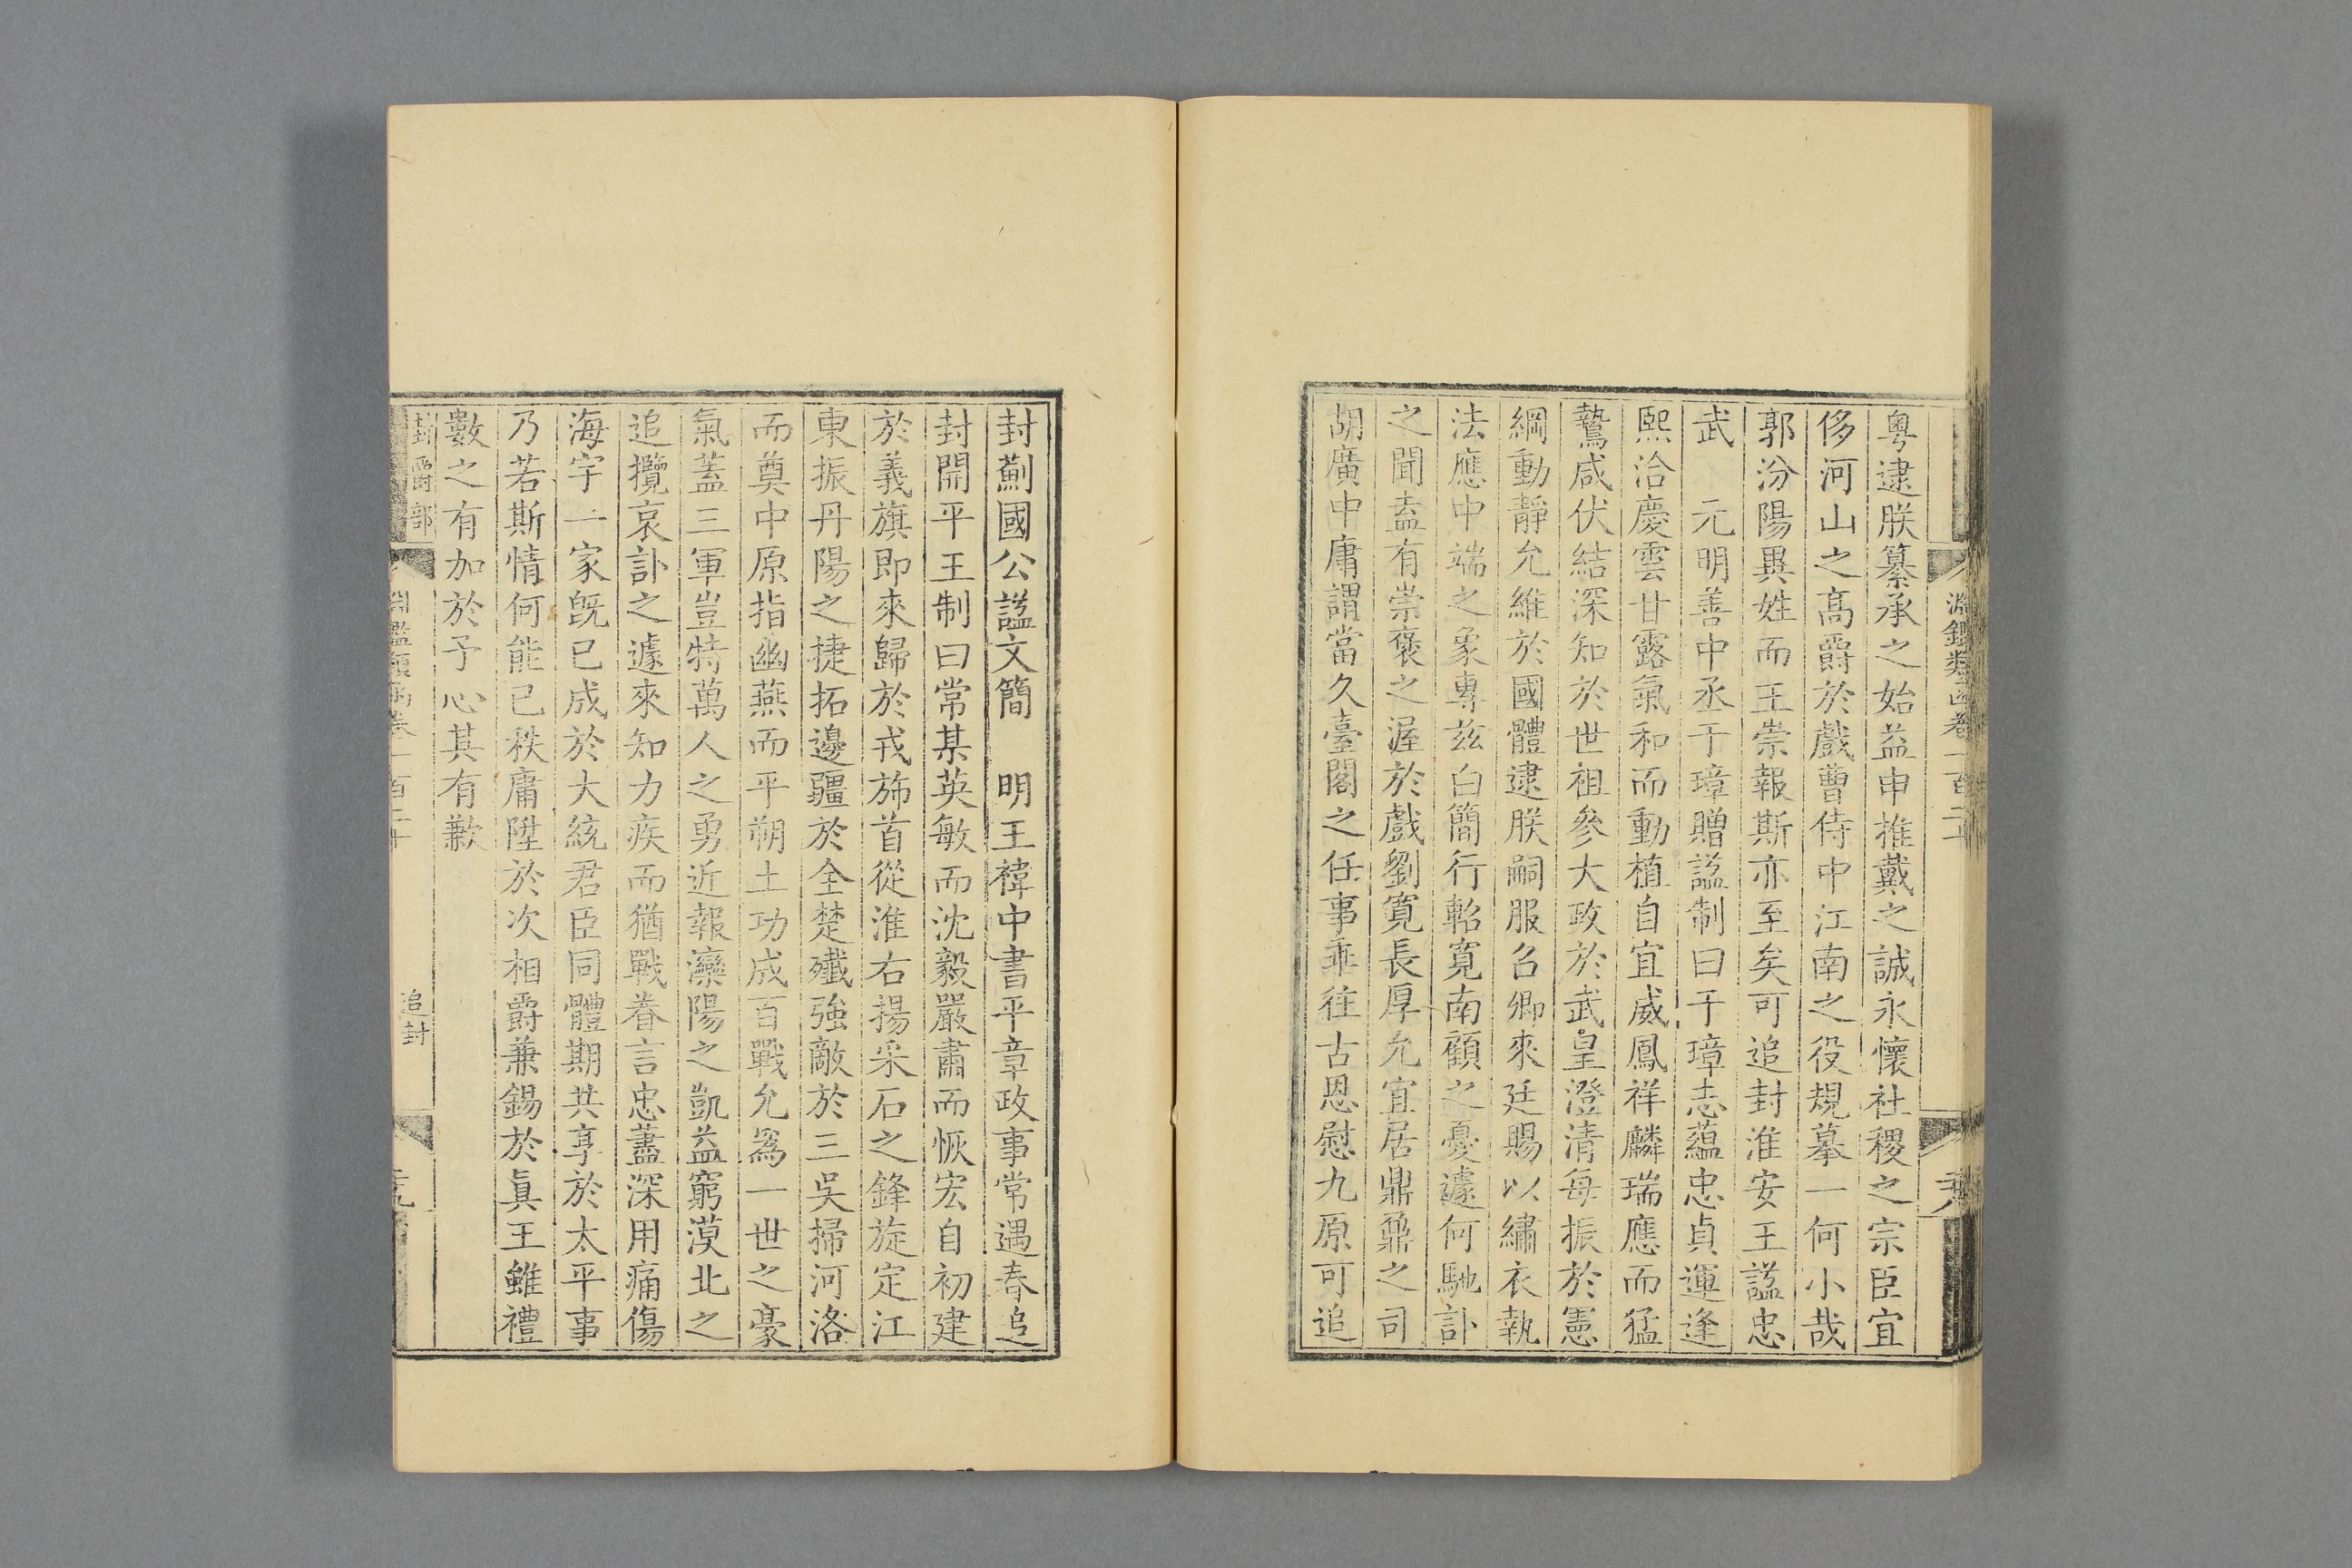 粵逮朕纂承之始益申推戴之誠永懷社稷之宗臣宜
侈河山之高爵於戲曹侍中江南之役規摹一何小哉
郭汾陽異姓而王崇報斯亦至矣可追封淮安王諡忠
武　元明善中丞于璋贈諡制曰于璋志蘊忠貞運逢
熙洽慶雲甘露氣和而動植自宜威鳳祥麟瑞應而猛
鷙咸伏結深知於世祖參大政於武皇澄清每振於憲
綱動靜允維於國體逮朕嗣服召卿來廷賜以繡衣執
法應中端之象專茲白簡行軺寬南顧之憂遽何馳訃
之聞盍有崇褒之渥於戲劉寬長厚允宜居鼎鼐之司
胡廣中庸謂當久臺閣之任事乖往古恩慰九原可追
封薊國公諡文簡　明王褘中書平章政事常遇春追
封開平王制曰常某英敏而沈毅嚴肅而恢宏自初建
於義旗即來歸於戎斾首從淮右揚采石之鋒旋定江
東振丹陽之捷拓邊疆於全楚殲強敵於三吳掃河洛
而奠中原指幽燕而平朔土功成百戰允爲一世之豪
氣蓋三軍豈特萬人之勇近報灤陽之凱益窮漠北之
追攬哀訃之遽來知力疾而猶戰眷言忠藎深用痛傷
海宇一家旣已成於大統君臣同體期共享於太平事
乃若斯情何能已秩庸陞於次相爵兼錫於眞王雖禮
數之有加於予心其有歉
封爵部
追封